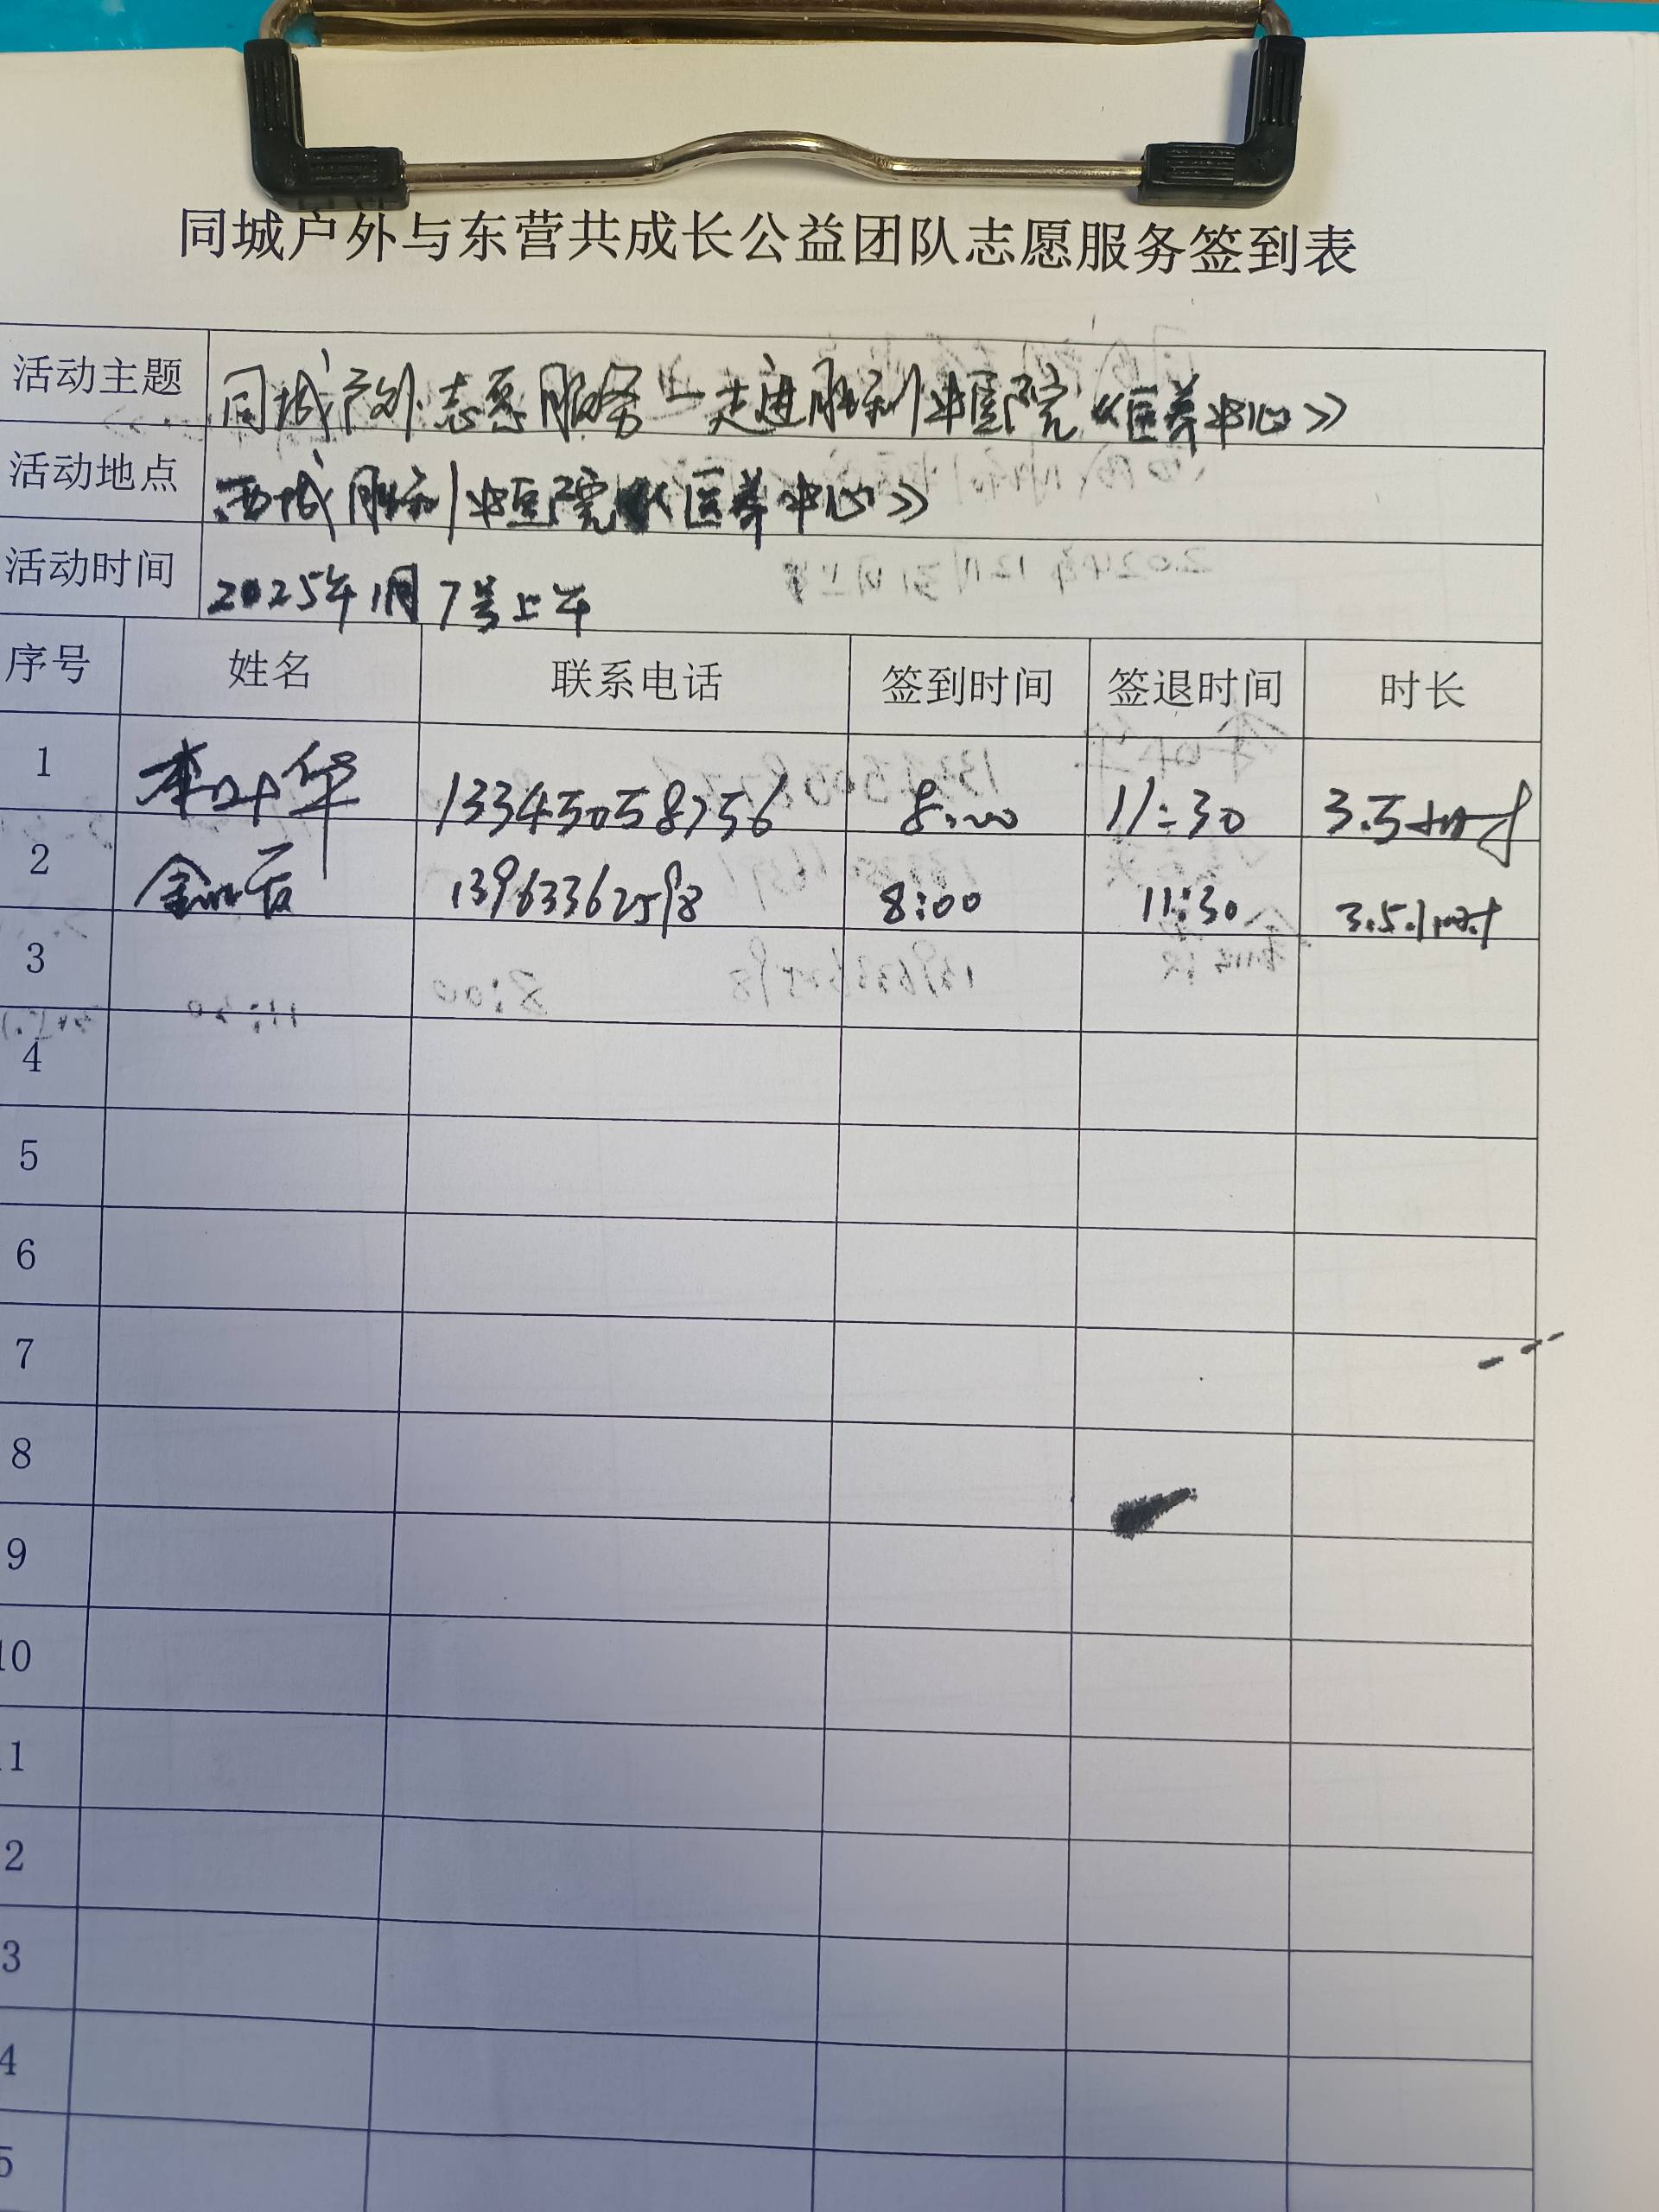 同城户外与东营共成长公益团队志愿服务签到表
活动主题 同城户外志愿服务—走进胜利中医院《医养中心》
活动地点 西城胜利中医院《医养中心》
活动时间 2025年1月7号上午
序号 姓名 联系电话 签到时间 签退时间 时长
1 李叶华 13345058756 8:00 11:30 3.5小时
2 金 13963362598 8:00 11:30 3.5小时
3
4
5
6
7
8
9
10
1
2
3
4
5